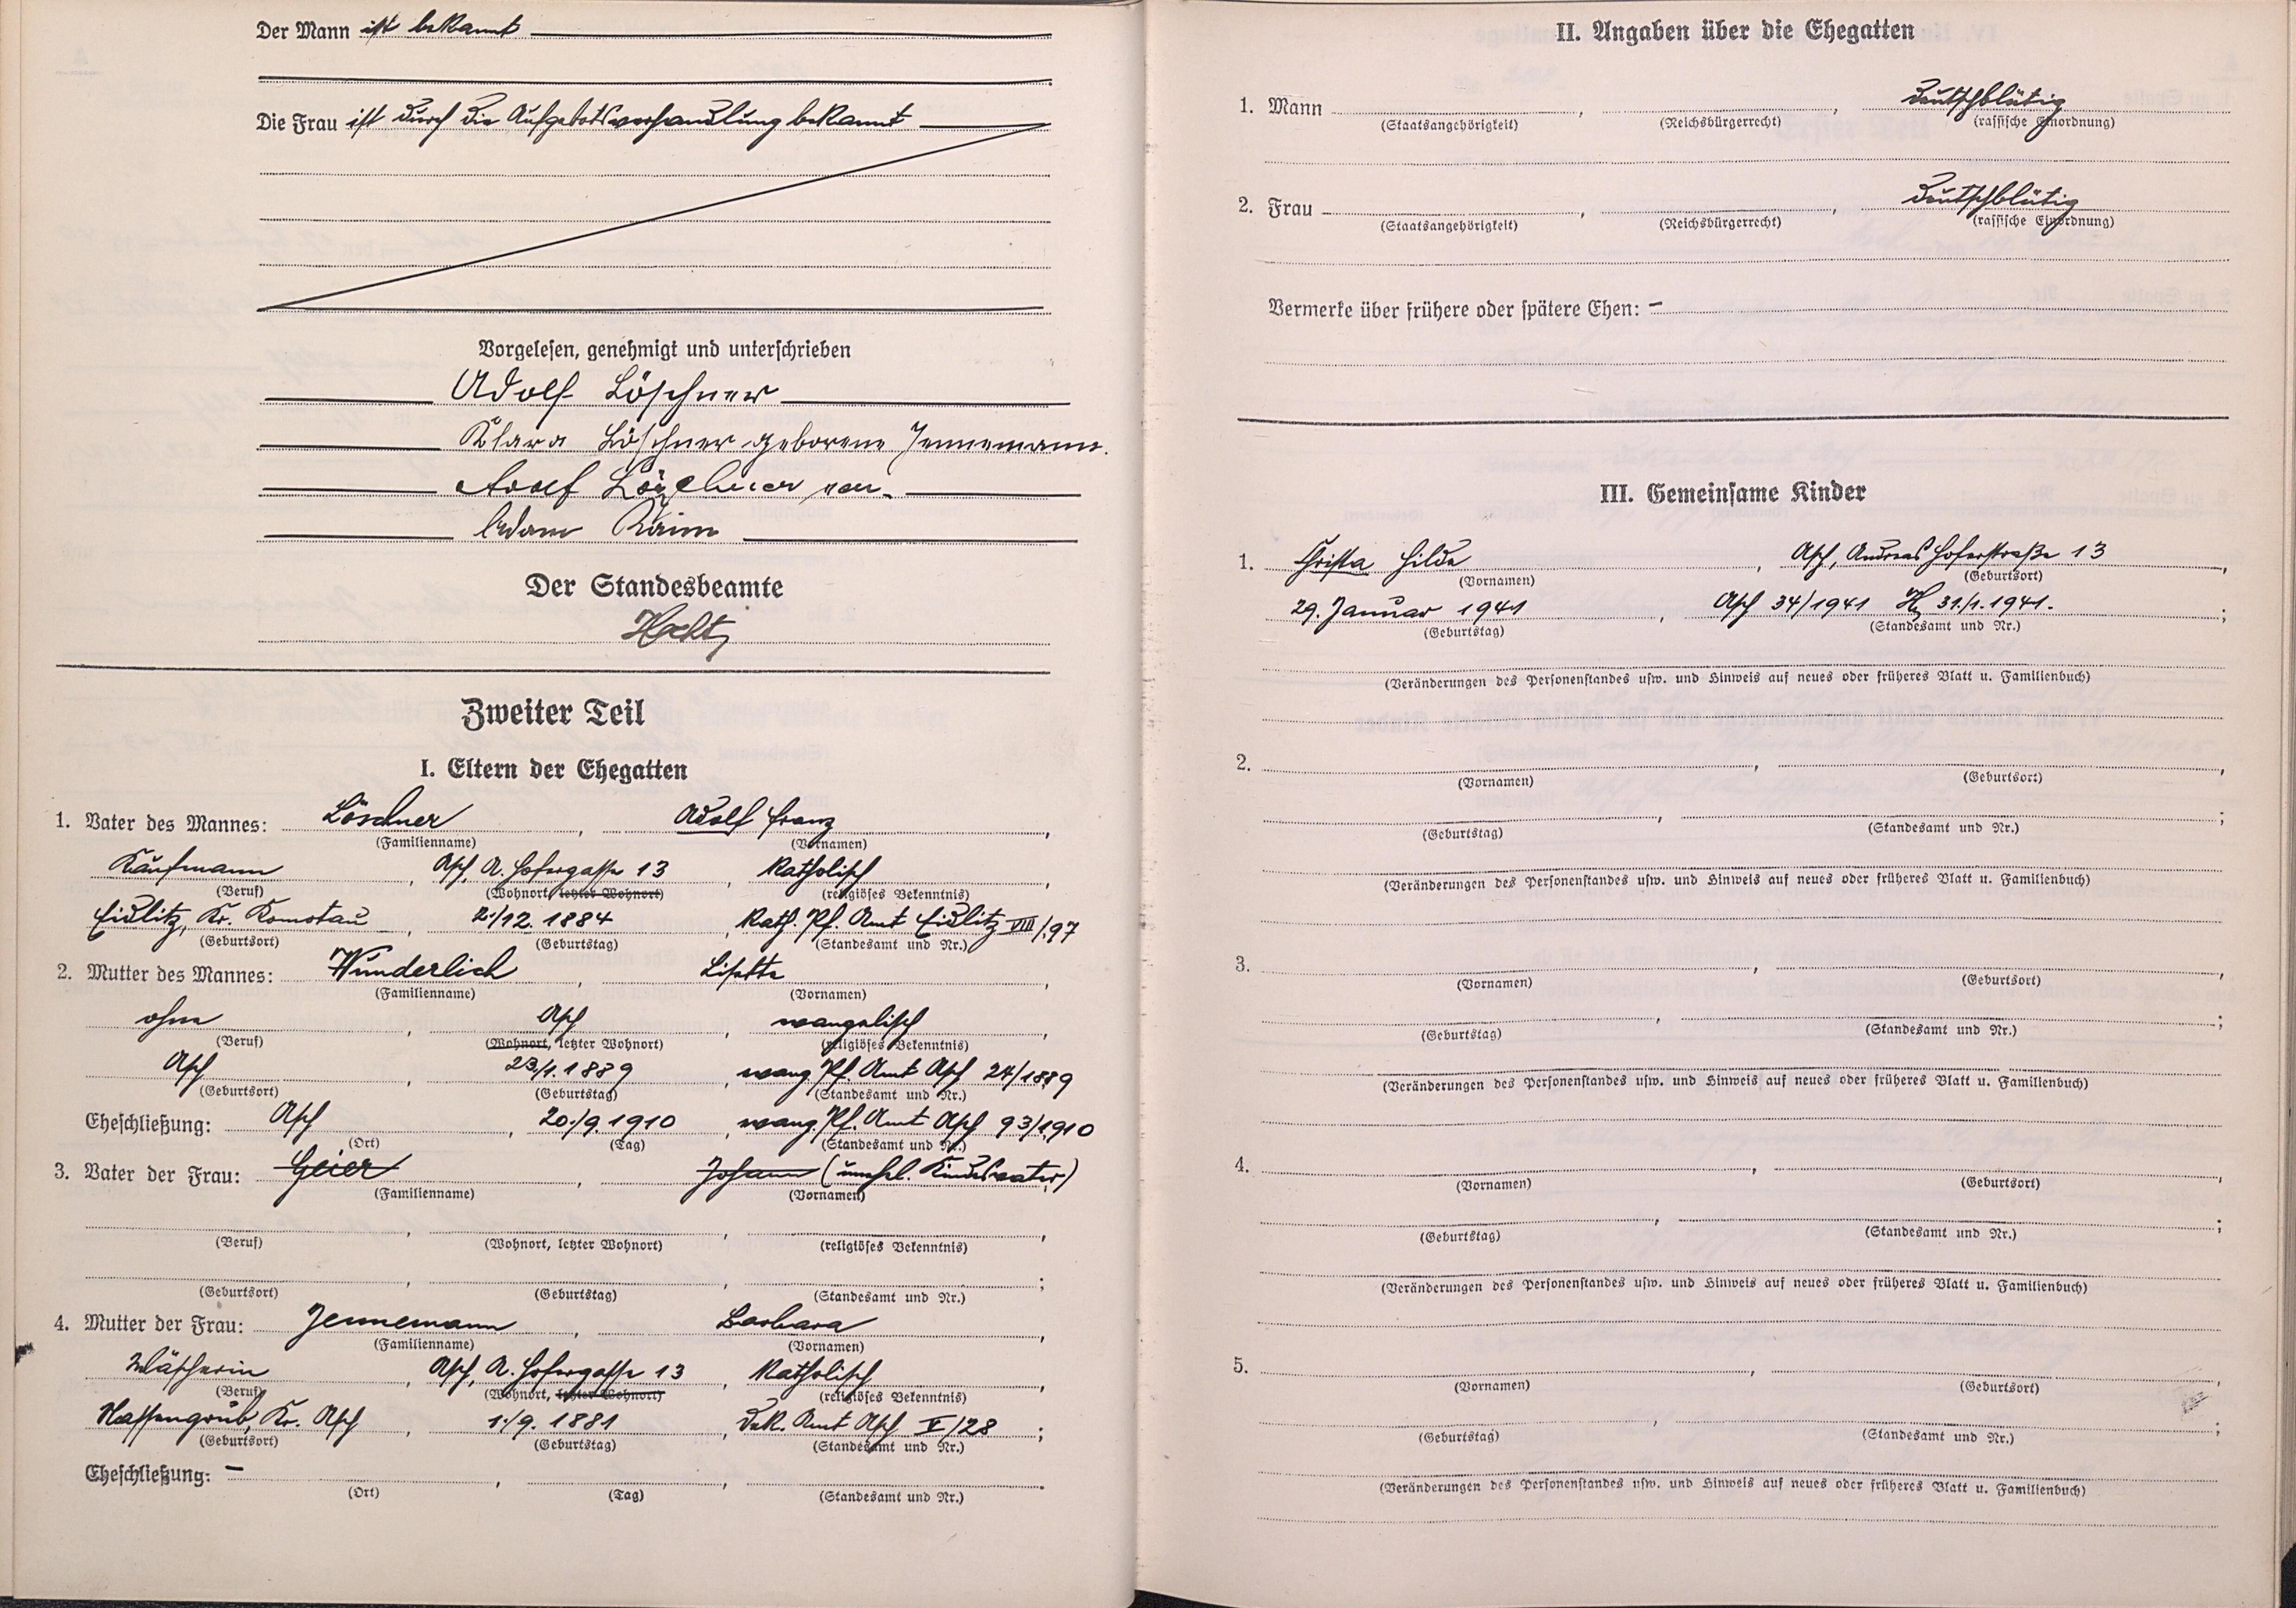 Der Mann ist bekannt
Die Frau ist durch die Aufgebotsverhandlung bekannt
Vorgelesen, genehmigt und unterschrieben
Adolf Löschner
Klara Löschner geborene Jennemann.
Adolf Löschner sen.
Adam Künn
Der Standesbeamte
Zweiter Teil
I. Eltern der Ehegatten
1. Vater des Mannes: Löschner, Adolf Franz,
(Familienname) (Vornamen)
Kaufmann, Asch, A. Hofergasse 13, Katholisch,
(Beruf) (Wohnort, letzter Wohnort) (religiöses Bekenntnis)
Eidlitz, Kr. Komotau, 2./12. 1884, Kath. Pf. Amt Eidlitz VIII/97
(Geburtsort) (Geburtstag) (Standesamt und Nr.)
2. Mutter des Mannes: Wunderlich, Lisette,
(Familienname) (Vornamen)
ohne, Asch, evangelisch,
(Beruf) (Wohnort, letzter Wohnort) (religiöses Bekenntnis)
Asch, 23/1. 1889, evang. Pf. Amt Asch 24/1889
(Geburtsort) (Geburtstag) (Standesamt und Nr.)
Eheschließung: Asch, 20./9. 1910, evang. Pf. Amt Asch 93/1910
(Ort) (Tag) (Standesamt und Nr.)
3. Vater der Frau: Geier, Johann (unehel. Kindesvater)
(Familienname) (Vornamen)
(Beruf) (Wohnort, letzter Wohnort) (religiöses Bekenntnis)
(Geburtsort) (Geburtstag) (Standesamt und Nr.)
4. Mutter der Frau: Jennemann, Barbara,
(Familienname) (Vornamen)
Wäscherin, Asch, A. Hofergasse 13, Katholisch,
(Beruf) (Wohnort, letzter Wohnort) (religiöses Bekenntnis)
Nassengrub, Kr. Asch, 1./9. 1881, Dek. Amt Asch V/28;
(Geburtsort) (Geburtstag) (Standesamt und Nr.)
Eheschließung: –
(Ort) (Tag) (Standesamt und Nr.)
II. Angaben über die Ehegatten
1. Mann deutschblütig
(Staatsangehörigkeit) (Reichsbürgerrecht) (rassische Einordnung)
2. Frau deutschblütig
(Staatsangehörigkeit) (Reichsbürgerrecht) (rassische Einordnung)
Vermerke über frühere oder spätere Ehen: –
III. Gemeinsame Kinder
1. Christa Hilde, Asch, Andreas Hoferstraße 13,
(Vornamen) (Geburtsort)
29. Januar 1941, Asch 34/1941 31./1. 1941.;
(Geburtstag) (Standesamt und Nr.)
(Veränderungen des Personenstandes usw. und Hinweis auf neues oder früheres Blatt u. Familienbuch)
2.
(Vornamen) (Geburtsort)
(Geburtstag) (Standesamt und Nr.)
(Veränderungen des Personenstandes usw. und Hinweis auf neues oder früheres Blatt u. Familienbuch)
3.
(Vornamen) (Geburtsort)
(Geburtstag) (Standesamt und Nr.)
(Veränderungen des Personenstandes usw. und Hinweis auf neues oder früheres Blatt u. Familienbuch)
4.
(Vornamen) (Geburtsort)
(Geburtstag) (Standesamt und Nr.)
(Veränderungen des Personenstandes usw. und Hinweis auf neues oder früheres Blatt u. Familienbuch)
5.
(Vornamen) (Geburtsort)
(Geburtstag) (Standesamt und Nr.)
(Veränderungen des Personenstandes usw. und Hinweis auf neues oder früheres Blatt u. Familienbuch)